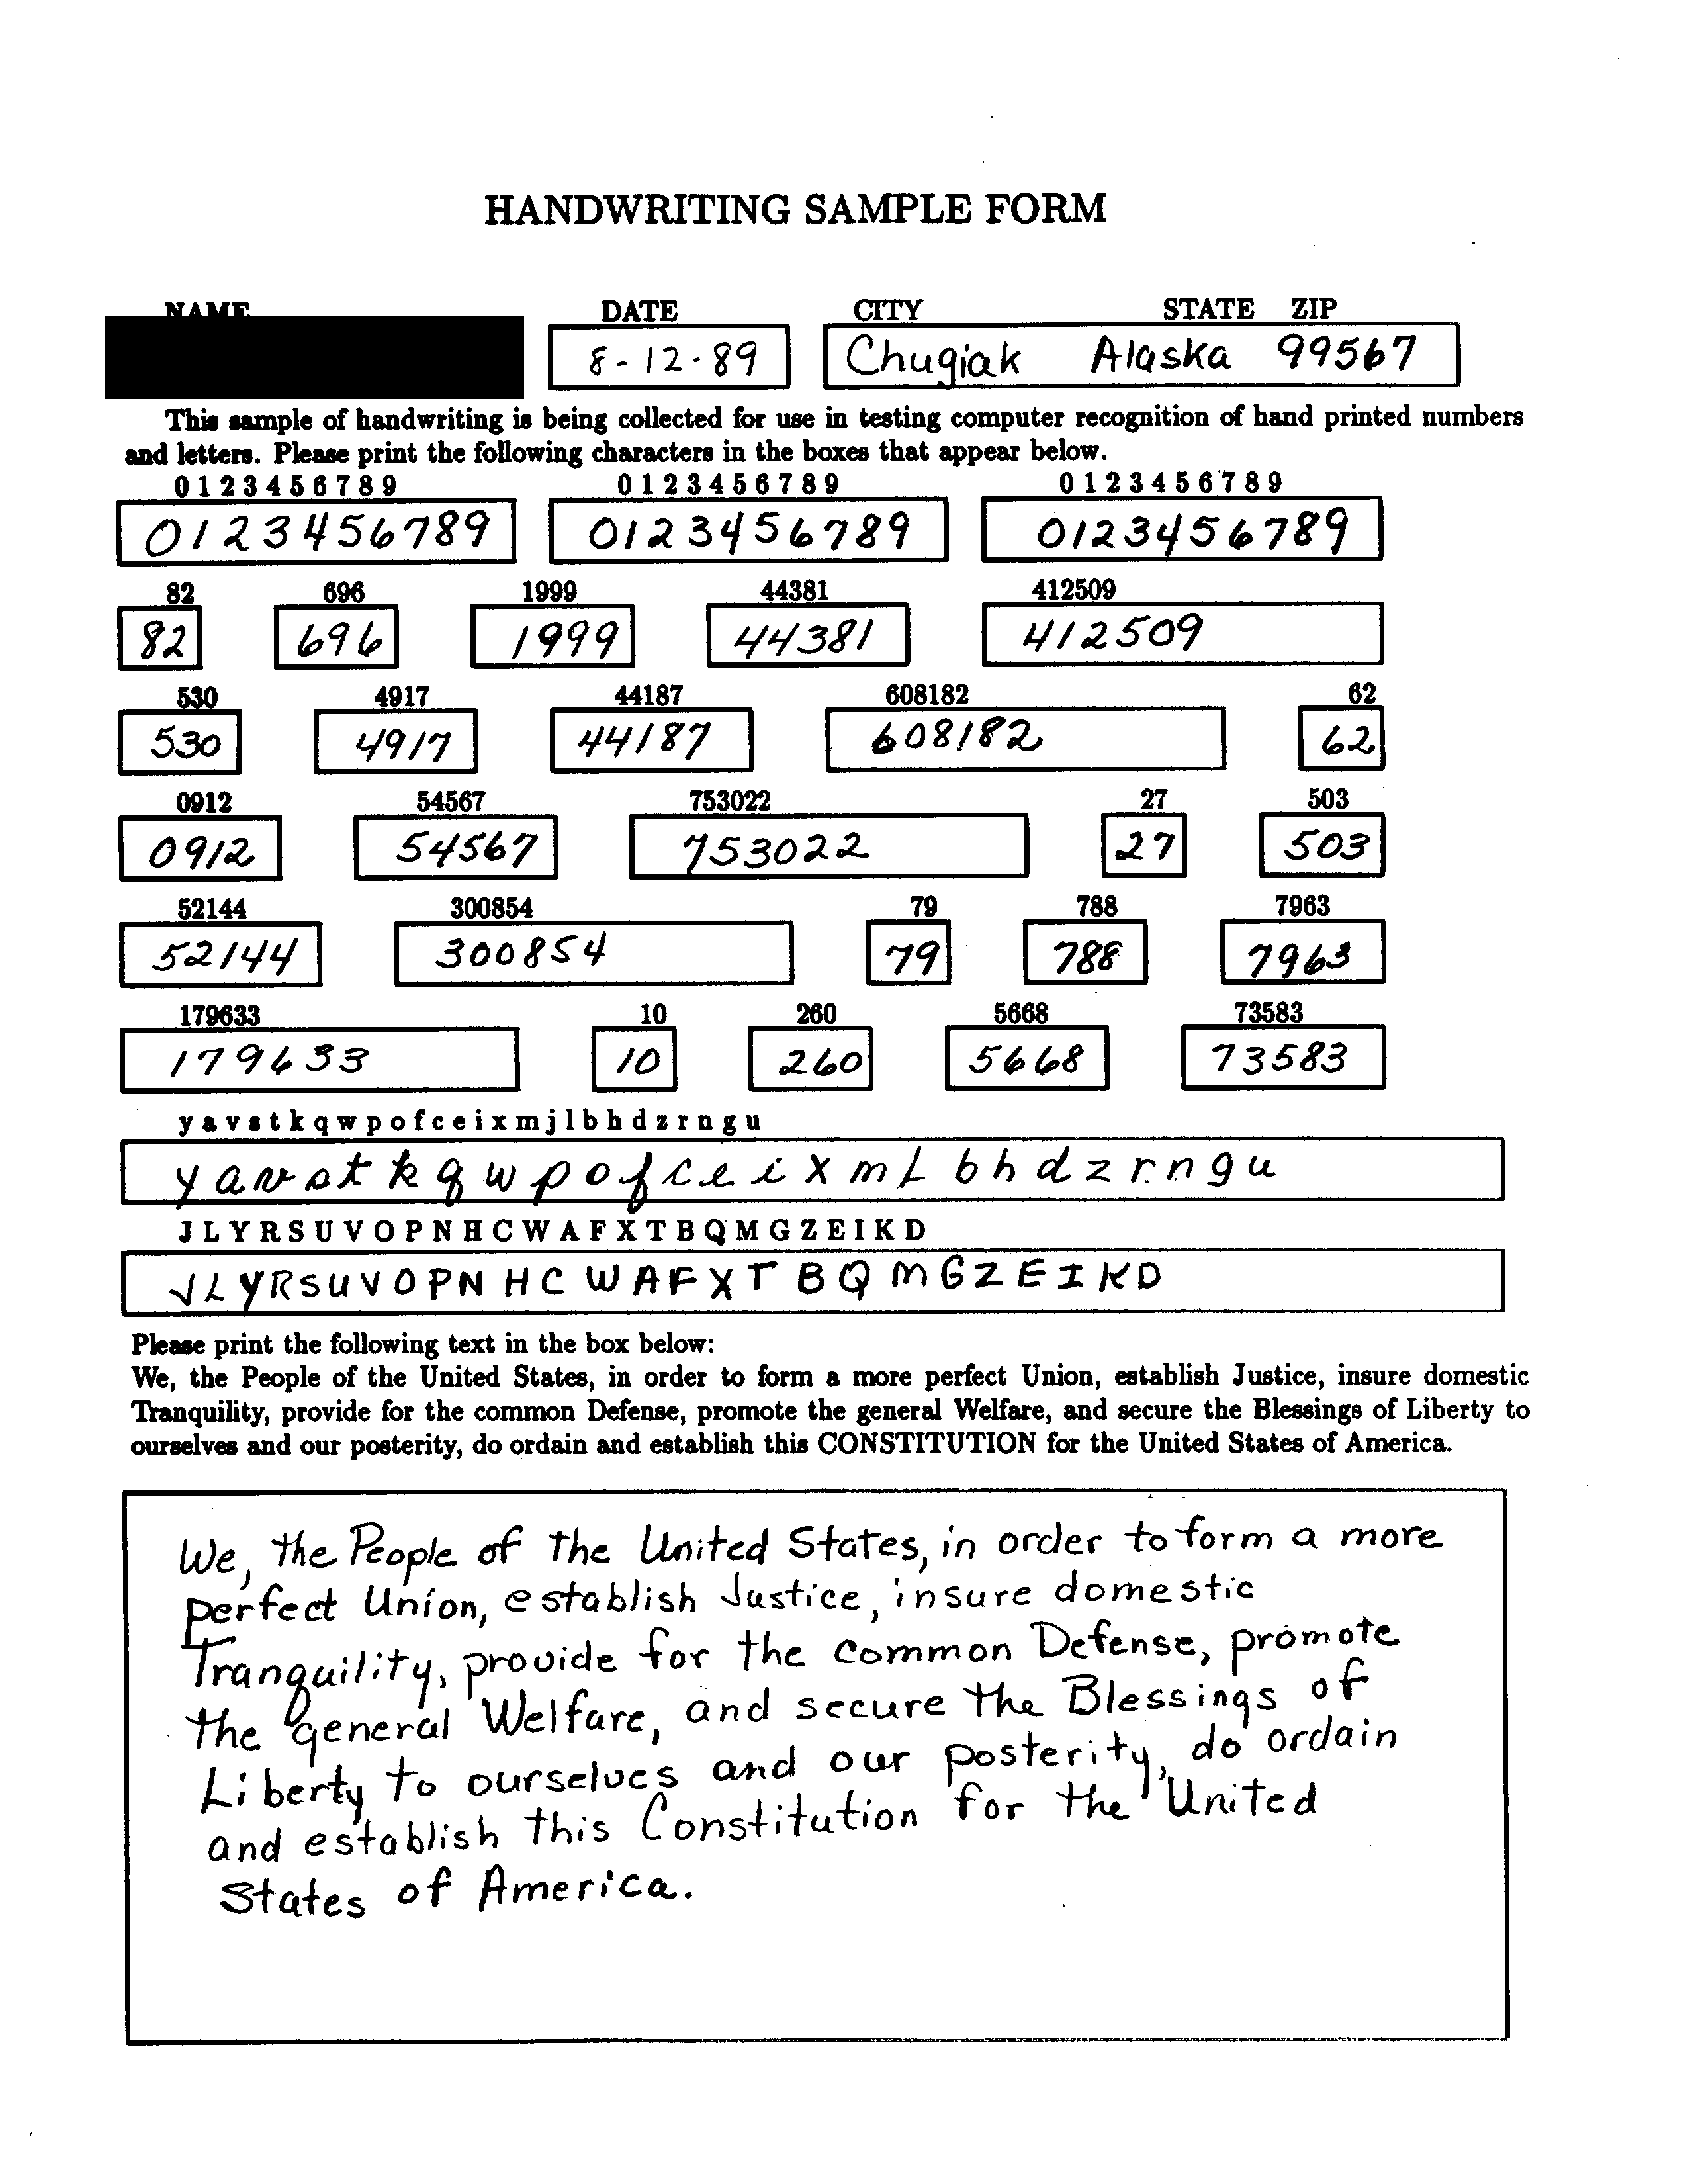 HANDWRITING SAMPLE FORM
NAME DATE CITY STATE ZIP
8-12-89 Chugiak Alaska 99567
This sample of handwriting is being collected for use in testing computer recognition of hand printed numbers
and letters. Please print the following characters in the boxes that appear below.
0 1 2 3 4 5 6 7 8 9 0 1 2 3 4 5 6 7 8 9 0 1 2 3 4 5 6 7 8 9
0123456789 0123456789 0123456789
82 696 1999 44381 412509
82 696 1999 44381 412509
530 4917 44187 608182 62
530 4917 44187 608182 62
0912 54567 753022 27 503
0912 54567 753022 27 503
52144 300854 79 788 7963
52144 300854 79 788 7963
179633 10 260 5668 73583
179633 10 260 5668 73583
y a v s t k q w p o f c e i x m j l b h d z r n g u
y a v s t k q w p o f c e i x m L b h d z r n g u
J L Y R S U V O P N H C W A F X T B Q M G Z E I K D
J L Y R S U V O P N H C W A F X T B Q M G Z E I K D
Please print the following text in the box below:
We, the People of the United States, in order to form a more perfect Union, establish Justice, insure domestic
Tranquility, provide for the common Defense, promote the general Welfare, and secure the Blessings of Liberty to
ourselves and our posterity, do ordain and establish this CONSTITUTION for the United States of America.
We, the People of the United States, in order to form a more
perfect Union, establish Justice, insure domestic
Tranquility, provide for the common Defense, promote
the general Welfare, and secure the Blessings of
Liberty to ourselves and our posterity, do ordain
and establish this Constitution for the United
States of America.